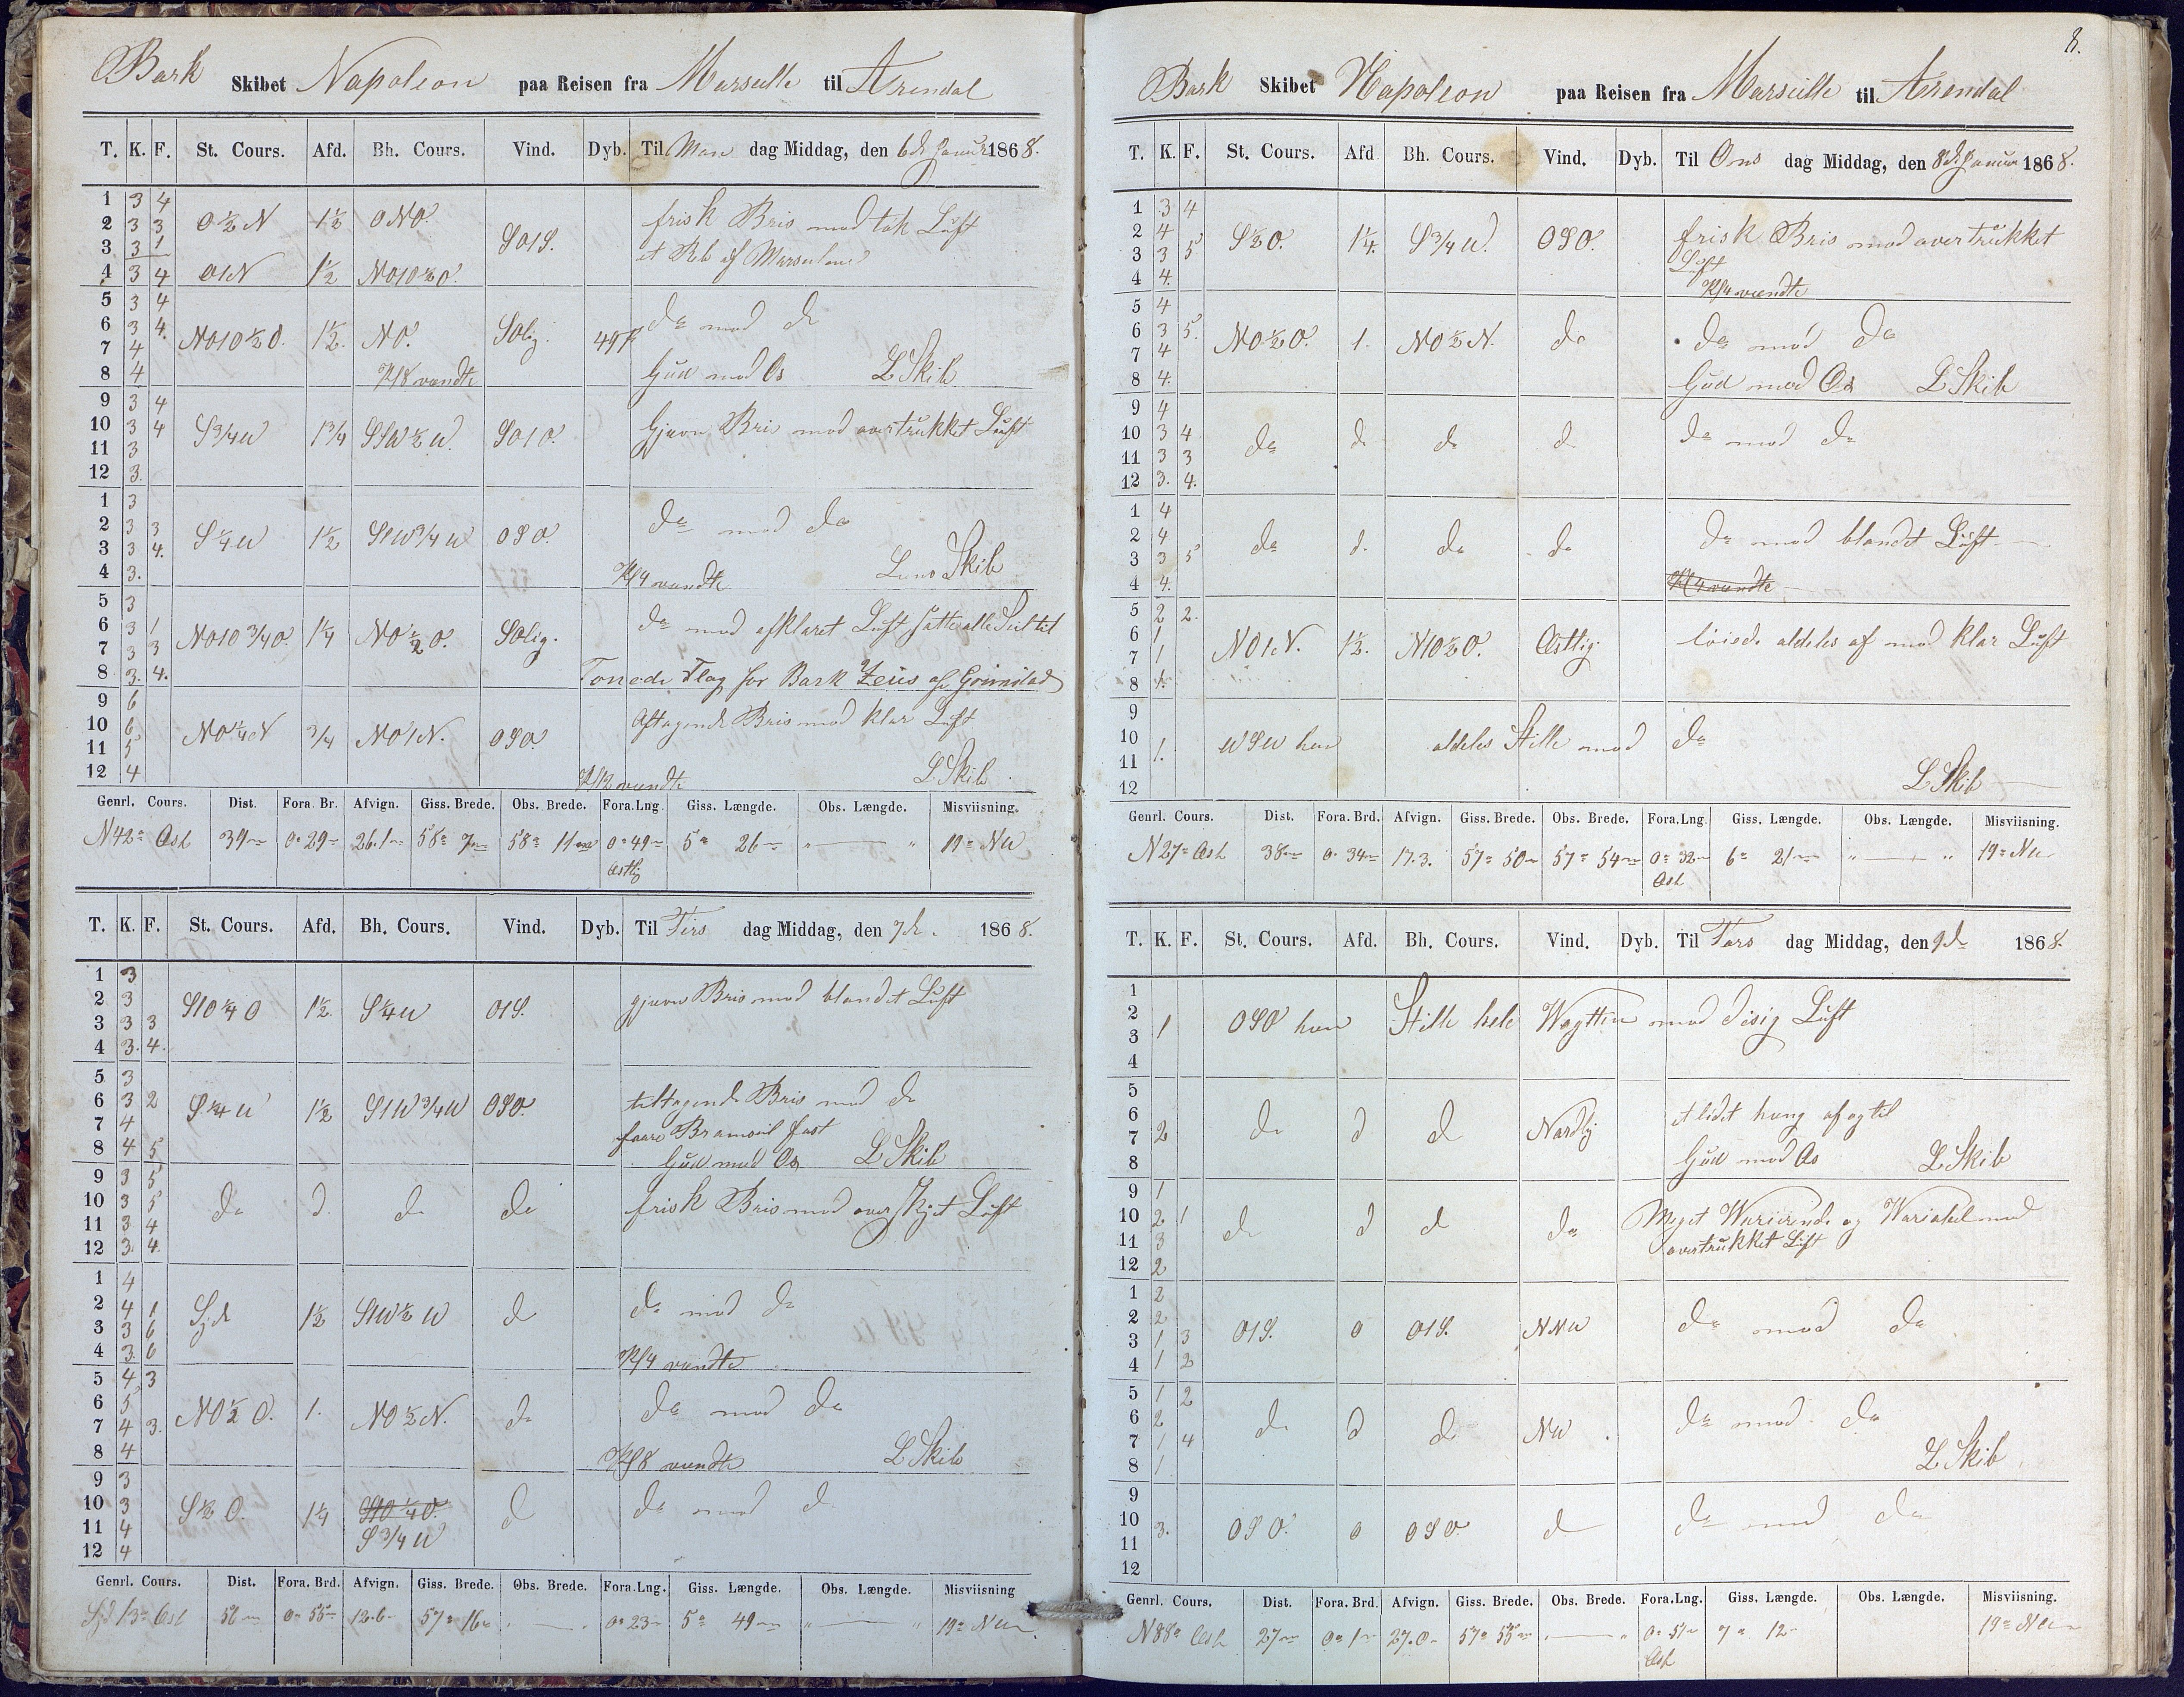 Bark Skibet Napoleon paa Reisen fra Marseille til Arendal
T. K. F. St. Cours. Afd. Bh. Cours. Vind. Dyb. Til Man dag Middag, den 6d Januar 1868.
1 3 4
2 3 3 O½N 1½ ONO. SO1S. frisk Bris med tok Luft
3 3 1 et Reb af Merseilene
4 3 4 O1N 1½ NO1O½O.
5 3 4
6 3 4. NO1O½O. 1½. NO. SOlig. 49 F da med d
7 4
8 4 Kl 8 vendte Gud med Os L Skib
9 3 4
10 3 4 S¾W 1¾ SSW½W. SO1O. Gjævn Bris med overtrukket Luft
11 3
12 3.
1 3
2 3 3 S¼W 1½ S1W¾W OSO. da med da
3 3 4.
4 3. Kl 4 vendte Lens Skib
5 3
6 3 1 NO1O¾O. 1¼ NO½O. SOlig. da med afklaret Luft satte alle Seil til
7 3 3
8 3. 4. Tonede Flag for Bark Zeus af Grimstad
9 6
10 6 NO¼N ¾ NO1N. OSO. Aftagende Bris med klar Luft
11 5
12 4 Kl 12 vendte L Skib
Genrl. Cours. Dist. Fora. Br. Afvign. Giss. Brede. Obs. Brede. Fora. Lng. Giss. Længde. Obs. Længde. Misviisning.
N 42° Ost 39 0° 29 26.1 58° 7 58° 11 0° 49 5° 26 " — " 19° NW
Ostlig
T. K. F. St. Cours. Afd. Bh. Cours. Vind. Dyb. Til Tirs dag Middag, den 7d. 1868.
1 3
2 3 S1O¼O 1½. S¼W O1S. gjævn Bris med blandet Luft
3 3 3
4 3. 4.
5 3
6 3 2 S¼W 1½ S1W¾W OSO. tiltagende Bris med d
7 4 faare Bramseil fast
8 4 5 Gud med Os L Skib
9 3 5
10 3 5 da d. d. da frisk Bris med overskyet Luft
11 3 4
12 3. 4.
1 4
2 4 1 Syd 1½ S1W½W d da med da
3 3 6
4 3. 6 Kl 4 vendte
5 4 3
6 5 NO½O. 1. NO½N. da da med da
7 4 3.
8 4 Kl 8 vendte L Skib
9 3
10 3 S½O. 1¼ S1O¼O. d da med d
11 4 S¾W
12 4
Genrl. Cours. Dist. Fora. Brd. Afvign. Giss. Brede. Obs. Brede. Fora. Lng. Giss. Længde. Obs. Længde. Misviisning
Syd 13° Ost 56 0° 55 12.6 57° 16 " — " 0° 23 5° 49 " — " 19° NW
8.
Bark Skibet Napoleon paa Reisen fra Marseille til Arendal
T. K. F. St. Cours. Afd Bh. Cours. Vind. Dyb. Til Ons dag Middag, den 8d. Januar 1868.
1 3 4
2 4 S½O. 1¼. S¾W. OSO. frisk Bris med overtrukket
3 3 5 Luft
4 4. Kl 4 vendte
5 4
6 3 5. NO½O. 1. NO½N. da da med da
7 4
8 4. Gud med Os L Skib
9 4
10 3 4 da d da d da med da
11 3 3
12 3. 4.
1 4
2 4 da d. da da da med blandet Luft
3 3 5
4 4. Kl 4 vendte
5 2 2.
6 1 NO1N. 1½. N1O½O. Ostlig løiede aldeles af med klar Luft
7 1
8 1.
9
10 1. WSW hen aldeles Stille med da
11
12 L Skib
Genrl. Cours. Dist. Fora. Brd. Afvign. Giss. Brede. Obs. Brede. Fora. Lng. Giss. Længde. Obs. Længde. Misviisning.
N 27° Ost 38 0° 34 17.3. 57° 50 57° 54 0° 32 6° 21 " — " 19° NW
Ost
T. K. F. St. Cours. Afd. Bh. Cours. Vind. Dyb. Til Tors dag Middag, den 9d 1868.
1
2 1 OSO hen Stille hele Wagtten med disig Luft
3
4
5
6 2 d d d Nordlig et lidet kung af og til
7
8 Gud med Os L Skib
9 1
10 2 1 d d d da Meget Warierende og Wariabel med
11 3 overtrukket Luft
12 2
1 2
2 2 O1S. 0 O1S. NNW da med da
3 1 3
4 1 2
5 1 2
6 2 d d d NW da med da
7 1 4
8 1 L Skib
9
10 3. OSO. 0 OSO d da med da
11
12
Genrl. Cours. Dist. Fora. Brd. Afvign. Giss. Brede. Obs. Brede. Fora. Lng. Giss. Længde. Obs. Længde. Misviisning.
N 88° Ost 27 0° 1 27.0 57° 55 " — " 0° 51 7° 12 19° NW
Ost